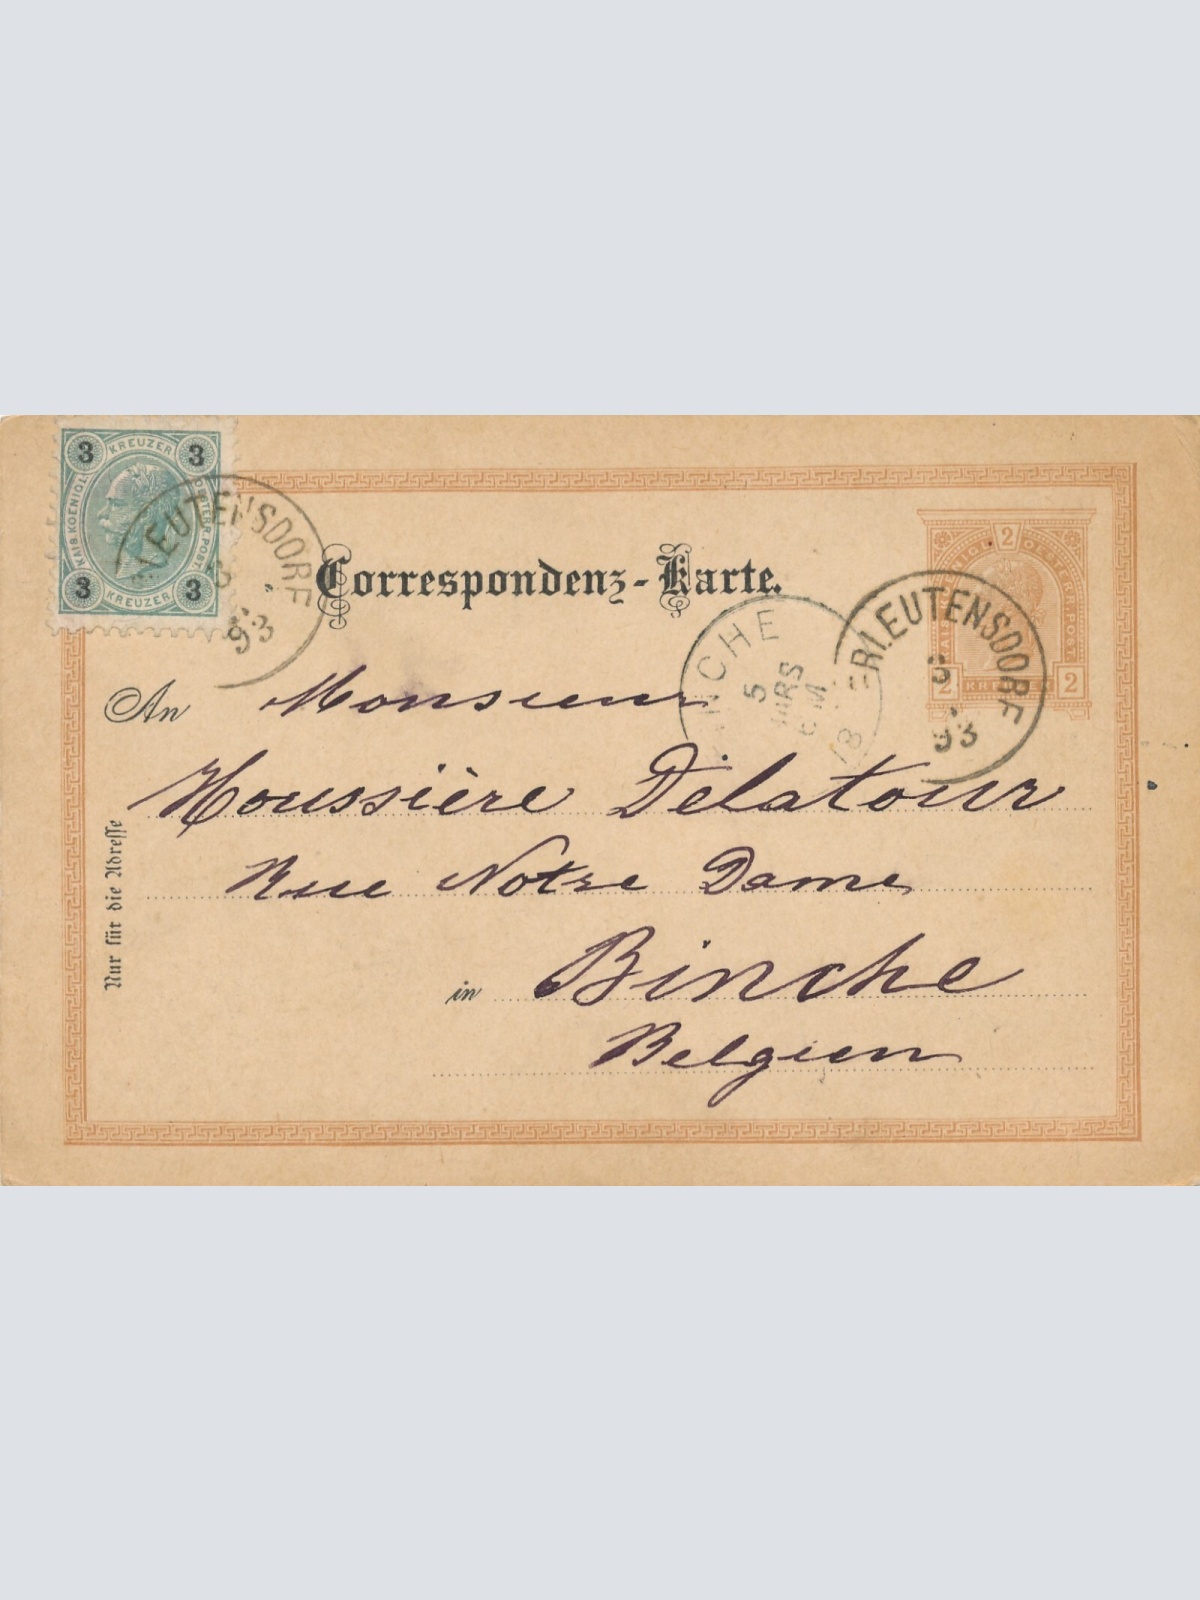 3 KREUZER 3
KAIS. KOENIGL. OESTERR. POST.
3 KREUZER 3
LEUTENSDORF
3
93
2
OESTERR. POST
2 2
ERLEUTENSDORF
3
93
Correspondenz-Karte.
BINCHE
5
MARS
6 M
An Monsieur
Houssière Délatour
Rue Notre Dame
in Binche
Belgien
Nur für die Adresse